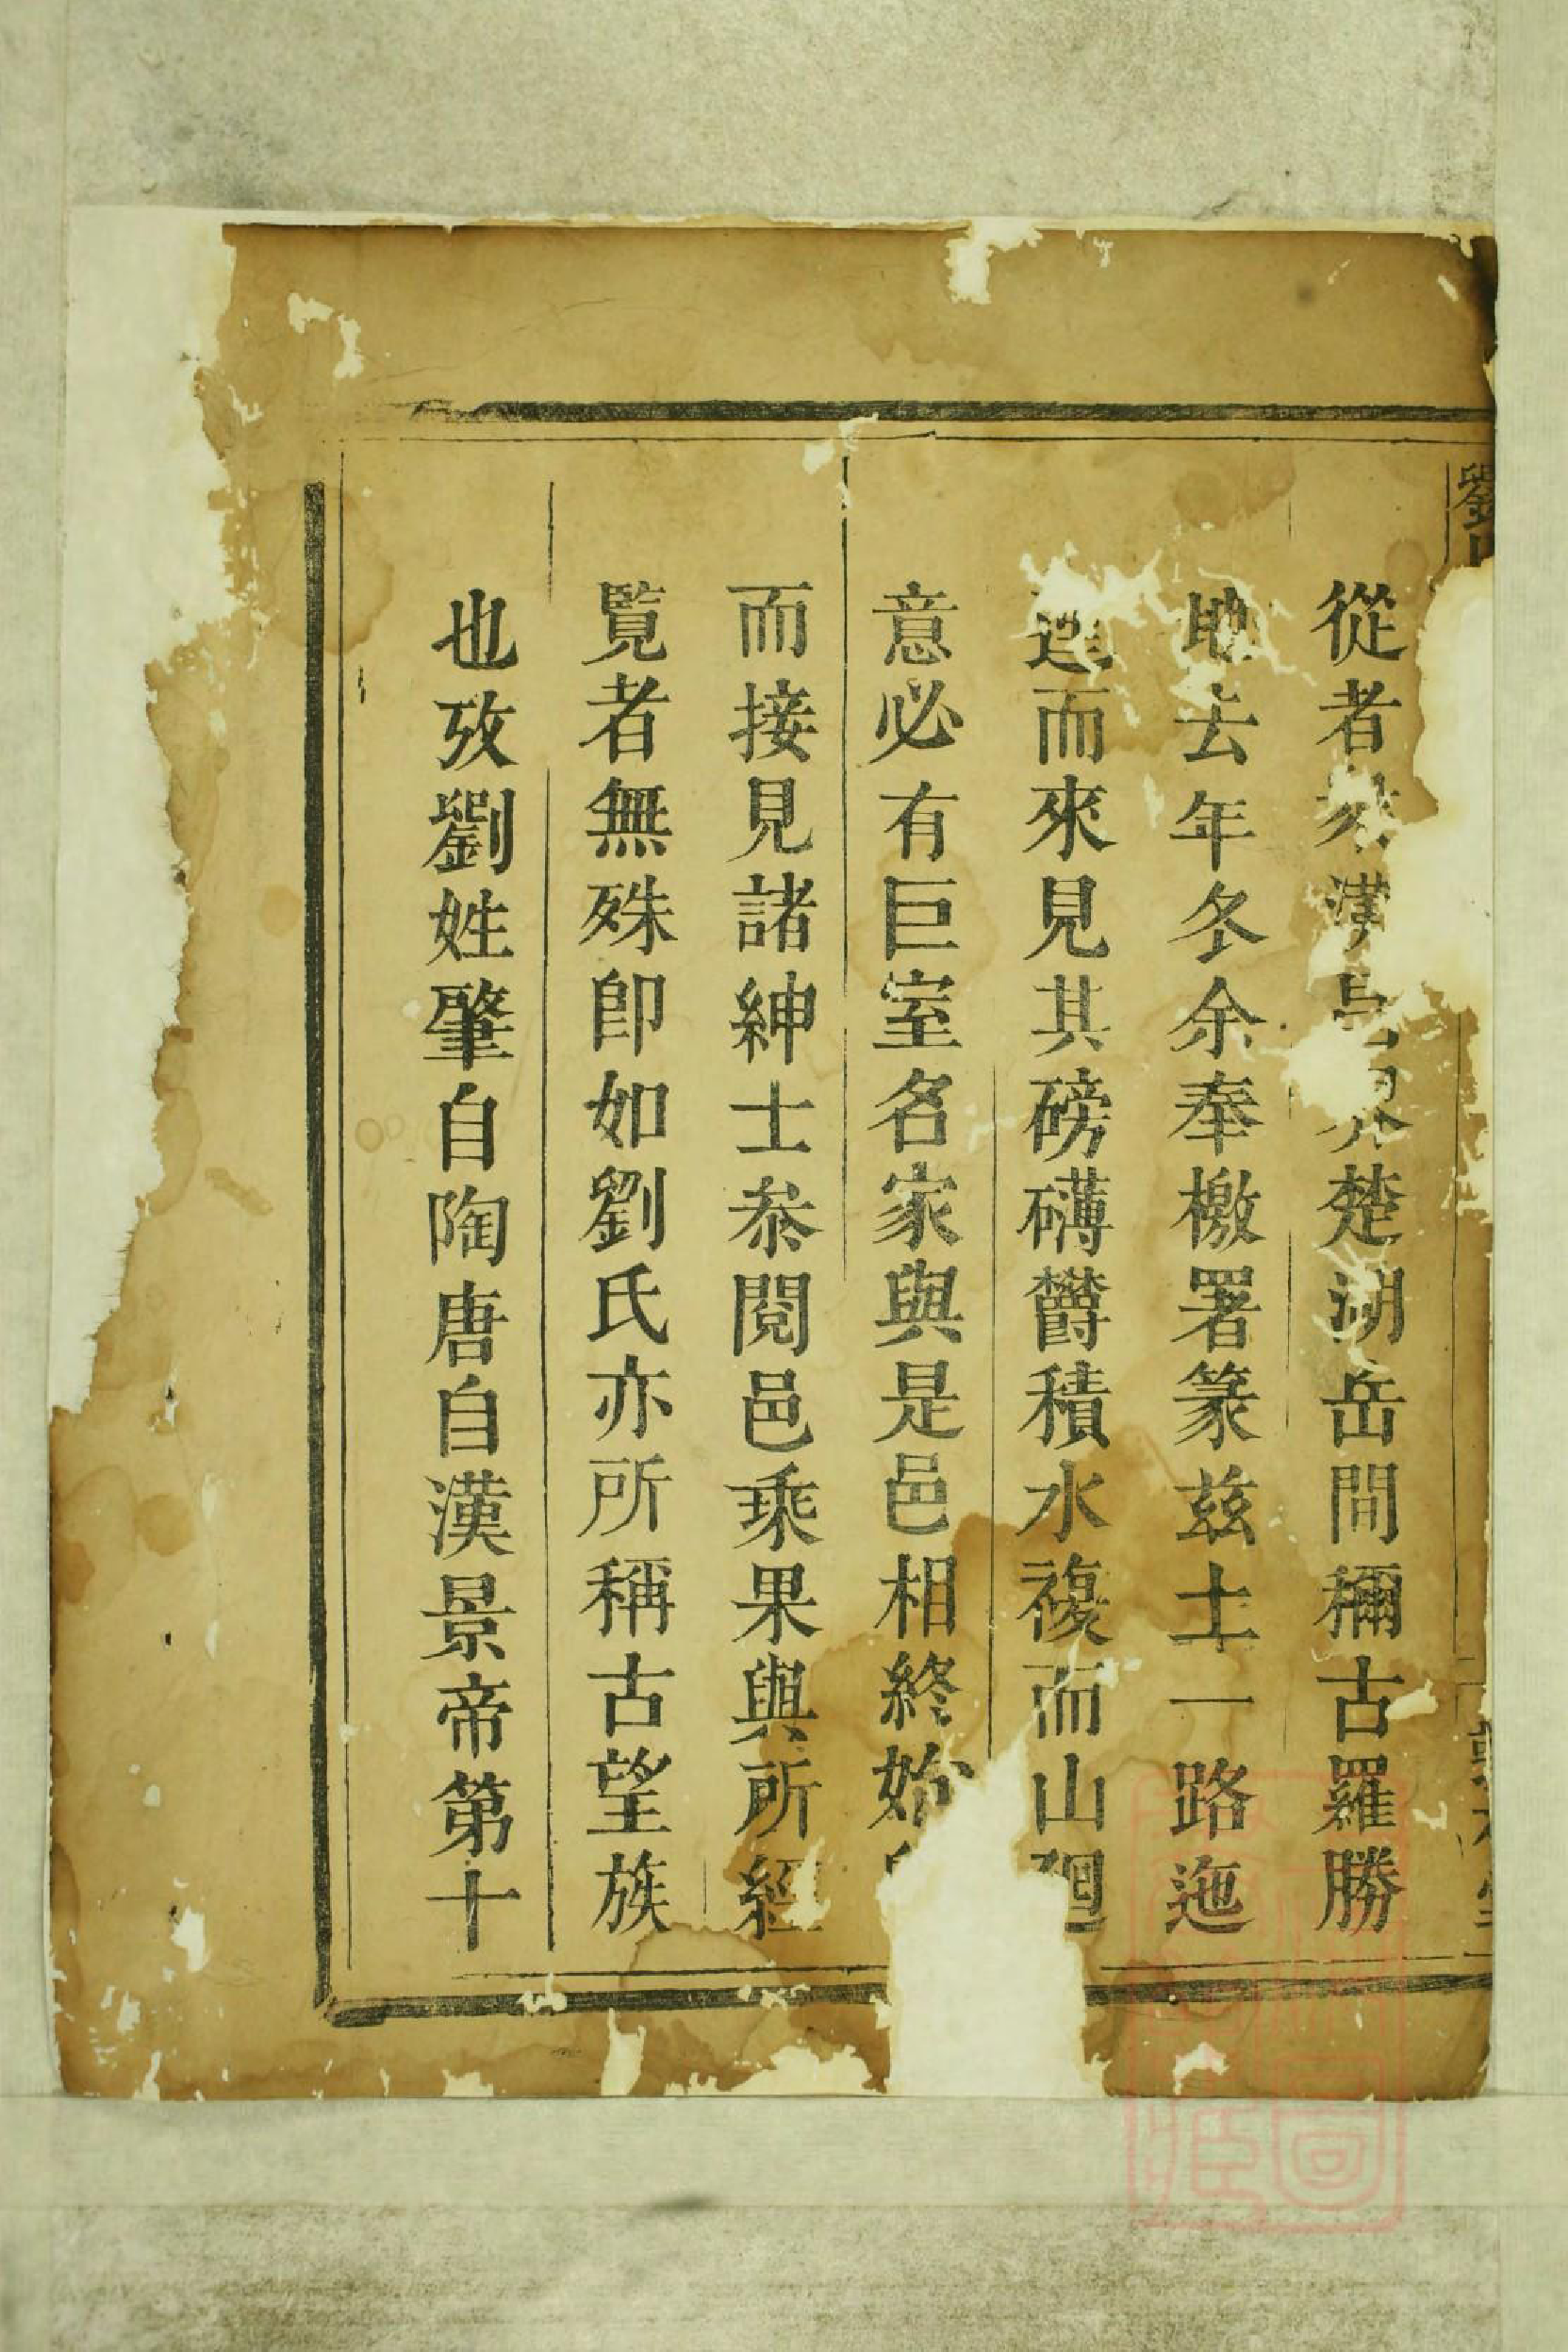 從者楚湖岳間禰古羅勝
地去年冬余奉檄署篆兹土一路迤
而來見其磅礴鬱積水複而山迴
意必有巨室名家與是邑相終始
而接見諸紳士叅閱邑乘果與所經
覧者無殊卽如劉氏亦所稱古望族
也攷劉姓肇自陶唐自漢景帝第十
劉